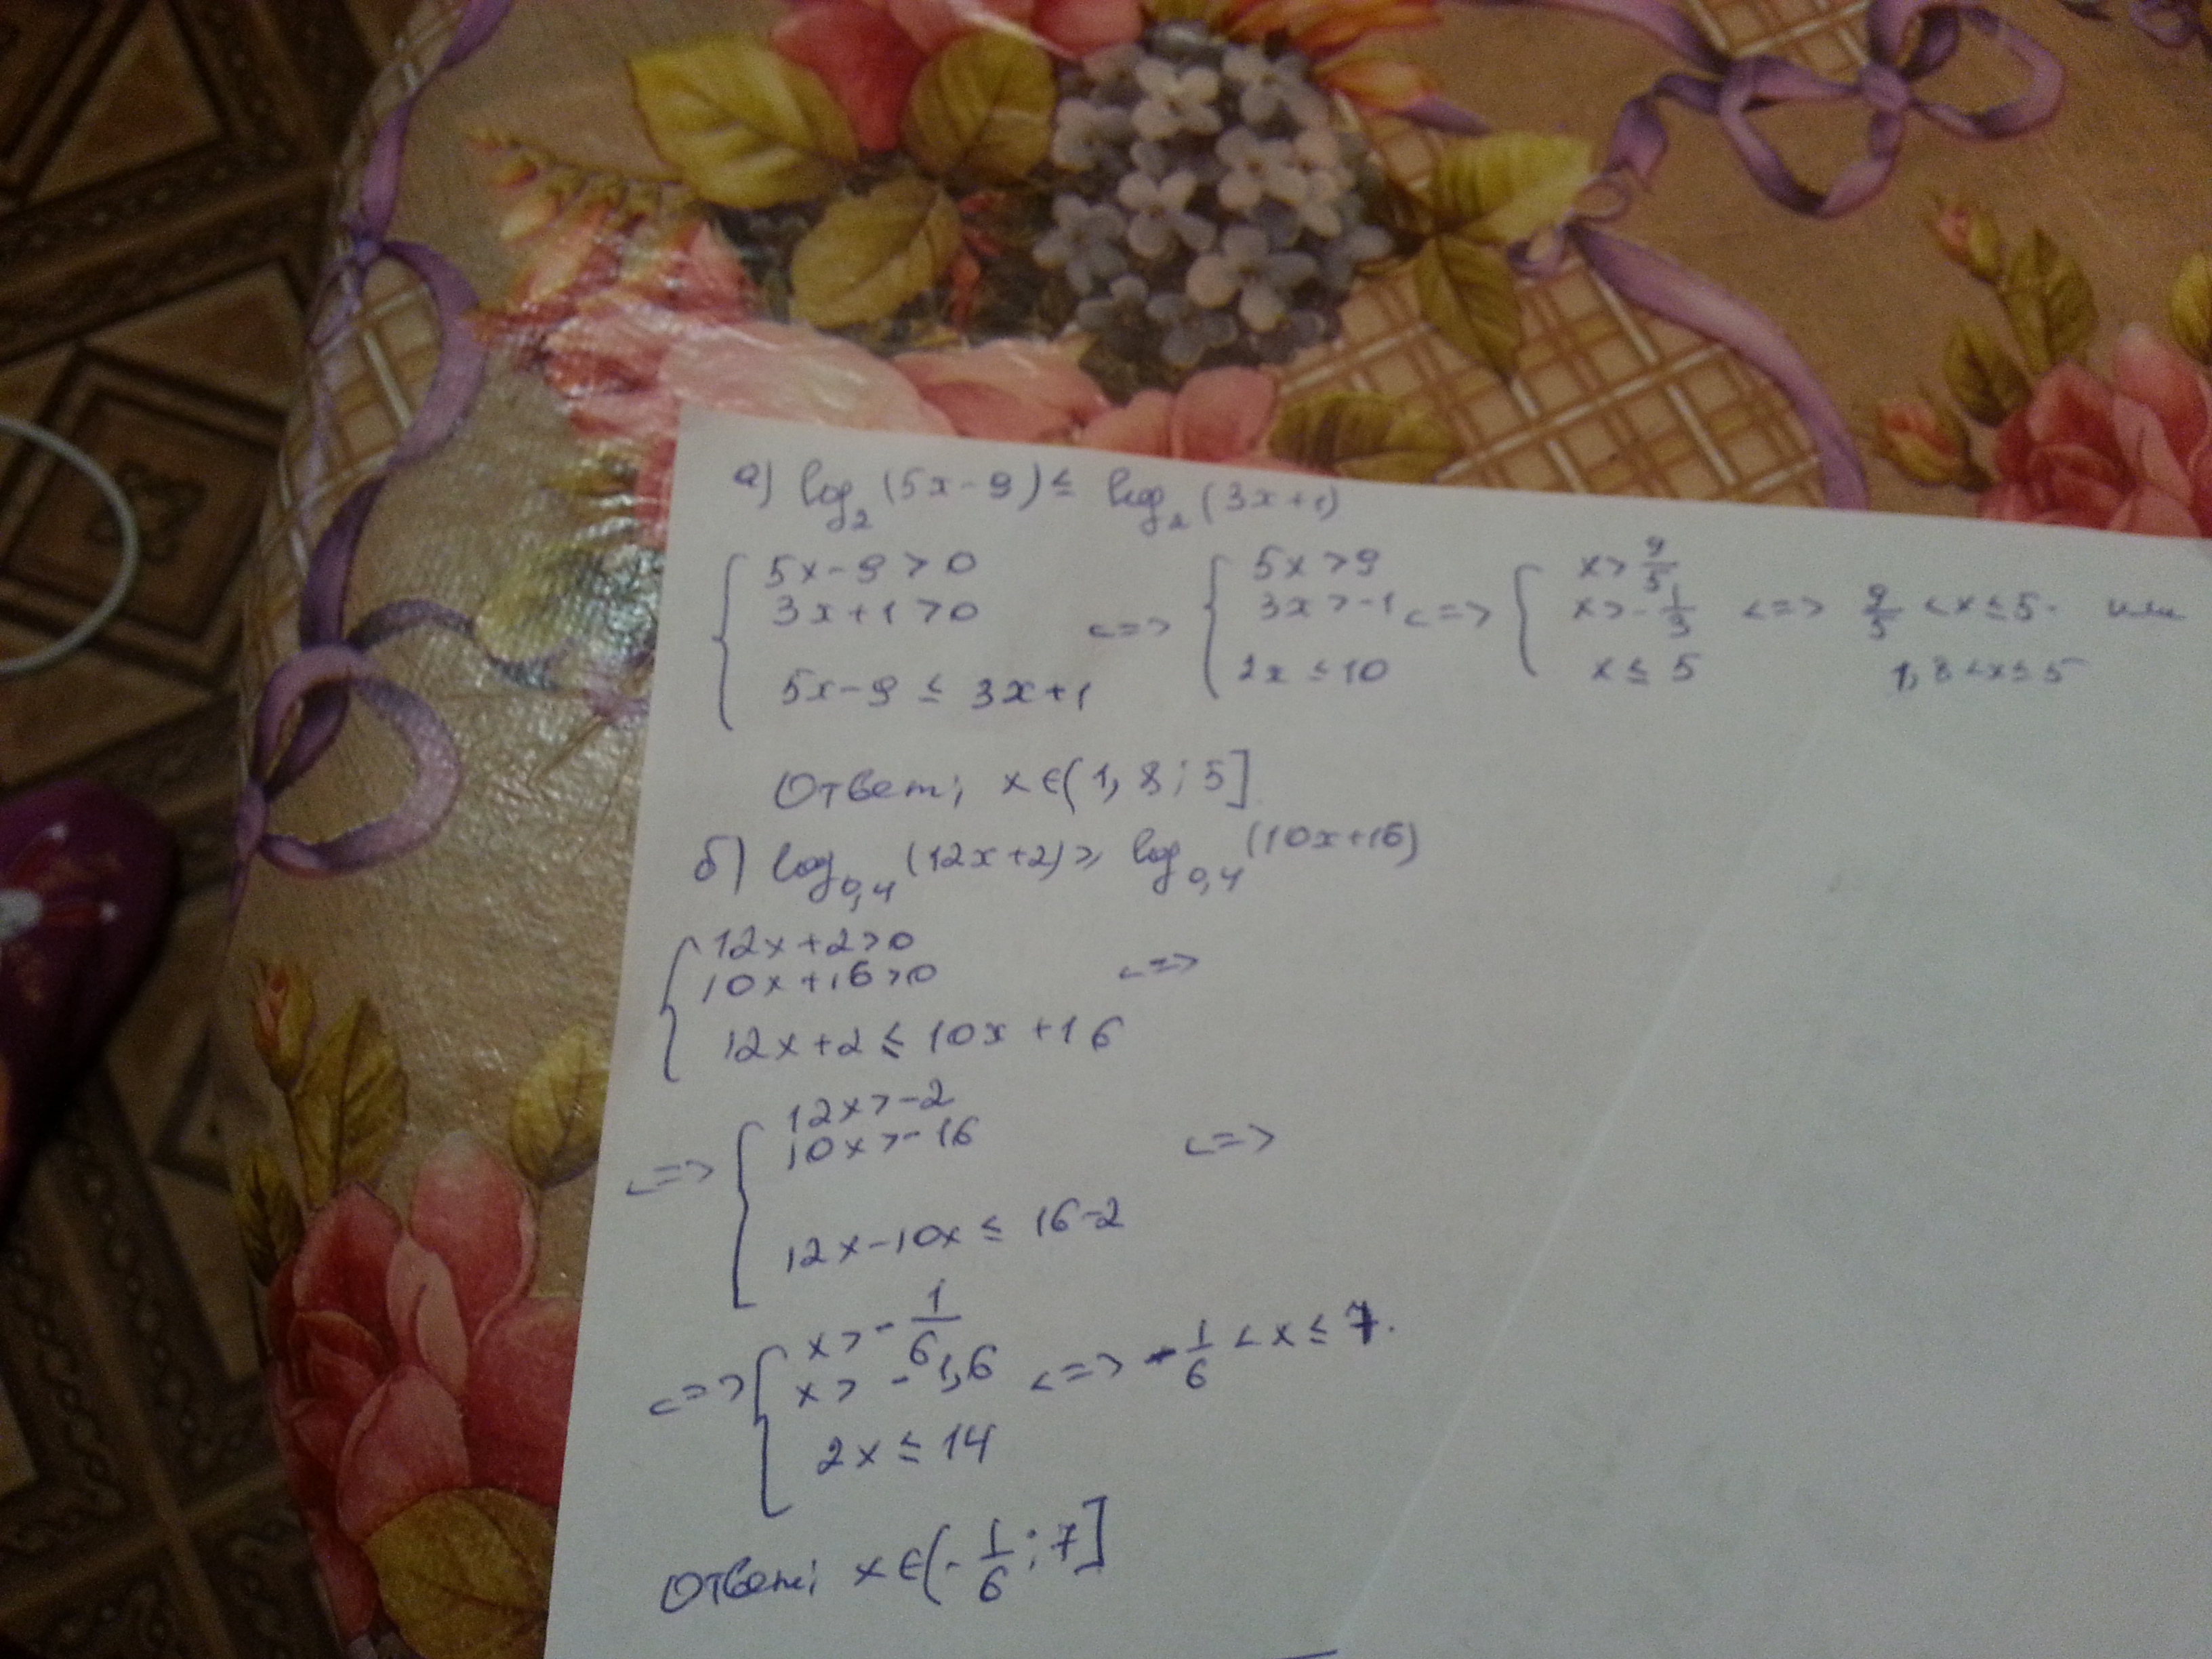 а) log₂(5x-9) ≤ log₂(3x+1)
{ 5x-9>0
3x+1>0
5x-9 ≤ 3x+1
<=> { 5x>9
3x>-1
2x ≤ 10
<=> { x> 9/5
x>-1/3
x ≤ 5
<=> 9/5 <x≤5. или
1,8<x≤5
Ответ; x∈(1,8;5]
б) log₀,₄(12x+2)≥ log₀,₄(10x+16)
{ 12x+2>0
10x+16>0
12x+2 ≤ 10x+16
<=>
<=> { 12x>-2
10x>-16
12x-10x ≤ 16-2
<=>
<=> { x>-1/6
x> -1,6
2x ≤ 14
<=> -1/6 <x≤7.
Ответ; x∈(-1/6;7]